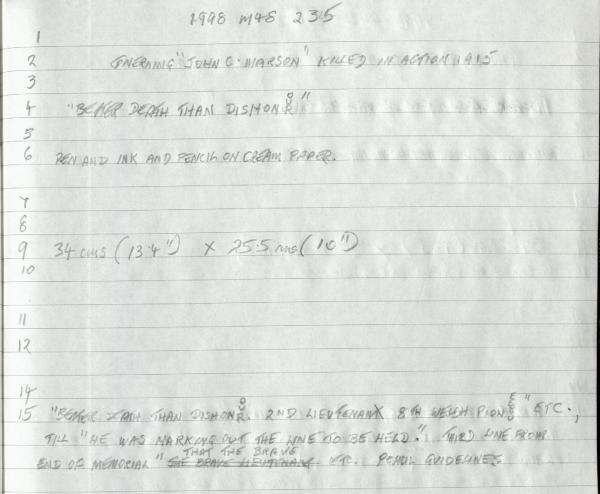 1998 M48 235
1
2 "JOHN C. MARSON" KILLED IN ACTION 1915
3
4 "BETTER DEATH THAN DISHONOUR"
5
6 PEN AND INK AND PENCIL ON CREAM PAPER.
7
8
9 34 cms (13.4") X 25.5 cms (10")
10
11
12
14
15 "BETTER DEATH THAN DISHONOUR. 2ND LIEUTENANT 8TH WELCH PIONEERS" ETC.,
TILL "HE WAS MARKING OUT THE LINE TO BE HELD." THIRD LINE FROM
THAT THE BRAVE
END OF MEMORIAL " THE BRAVE LIEUTENANT ETC. PENCIL GUIDELINES